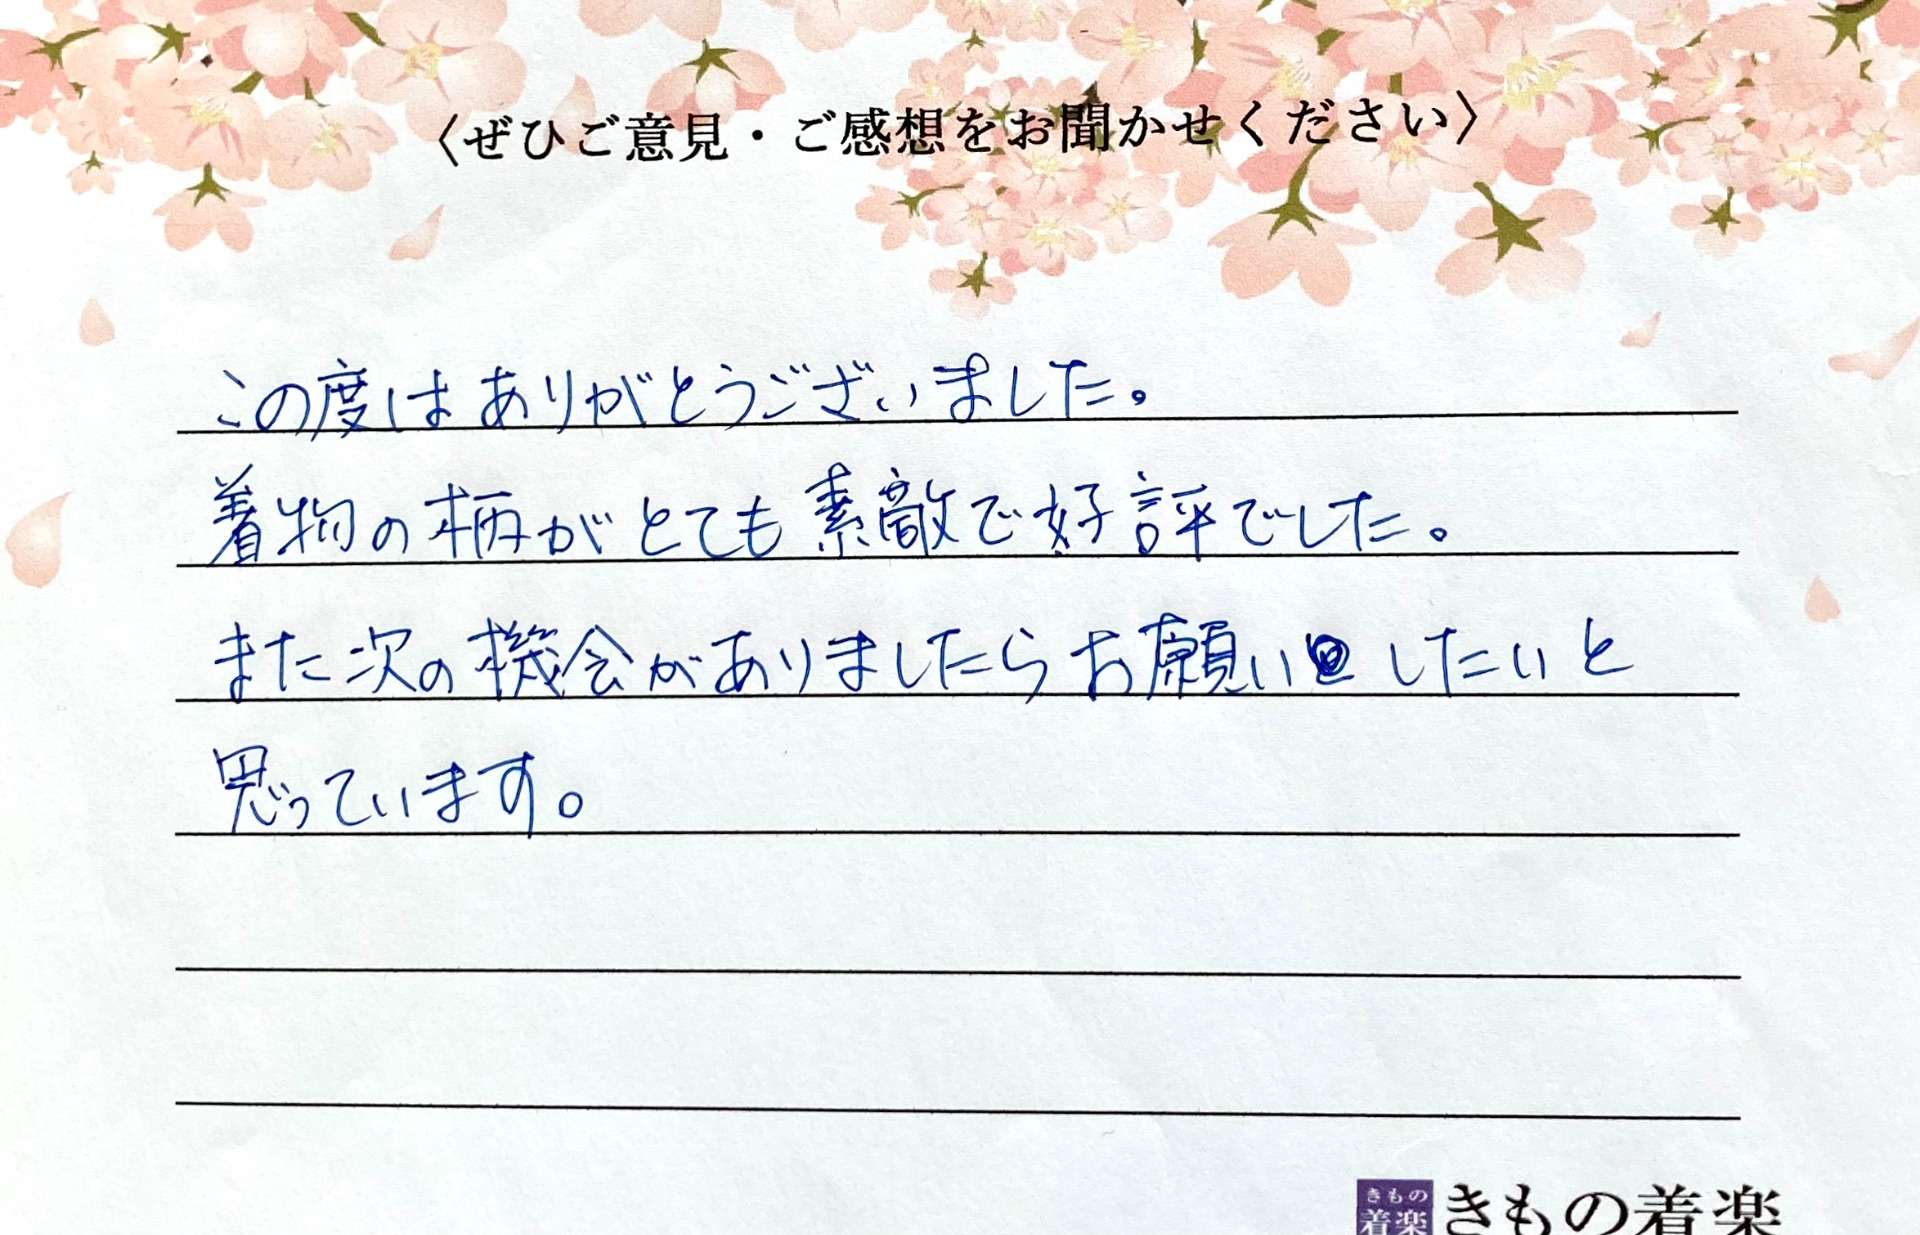 〈ぜひご意見・ご感想をお聞かせください〉
この度はありがとうございました。
着物の柄がとても素敵で好評でした。
また次の機会がありましたらお願いしたいと
思っています。
きもの
着楽
きもの着楽